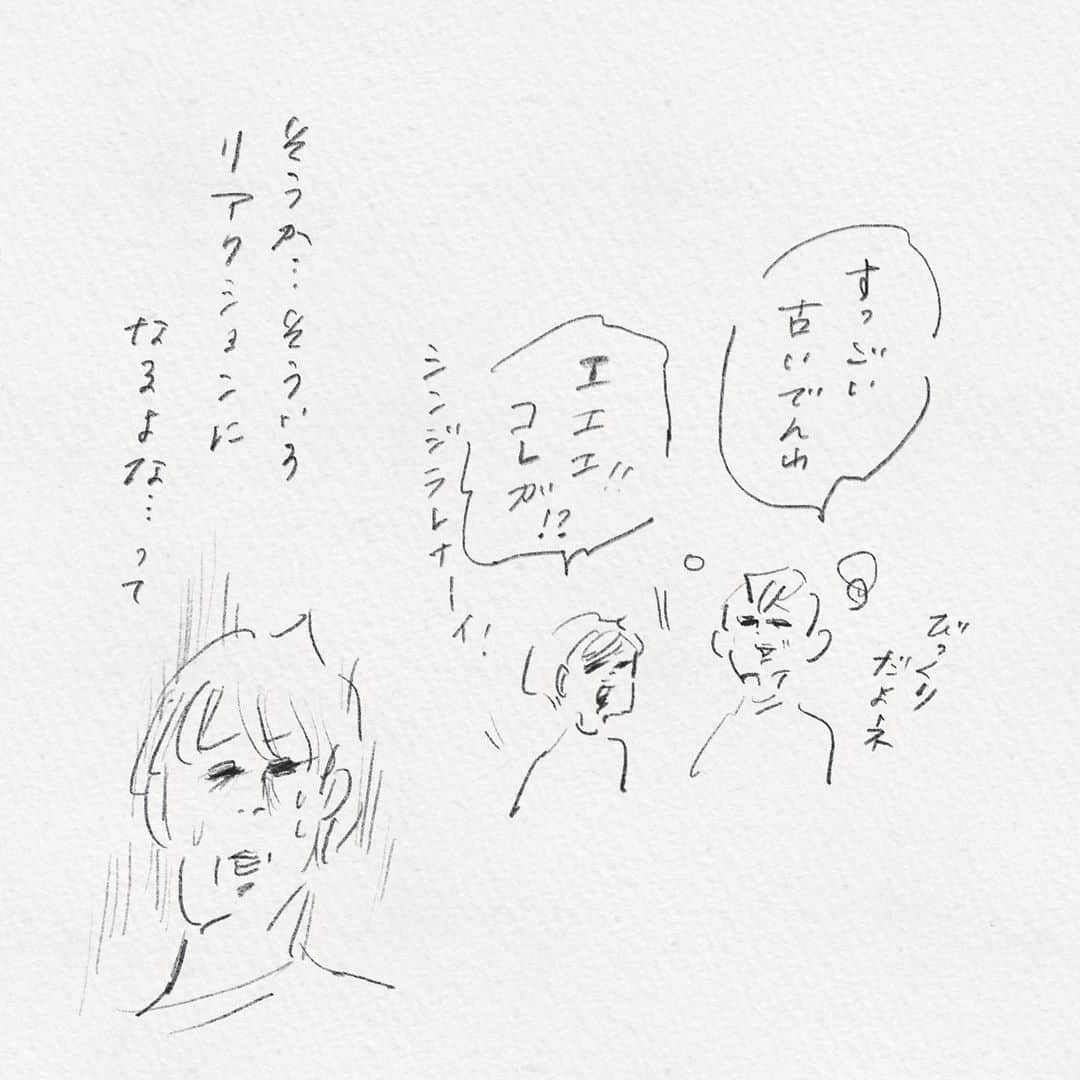 すっごい
古いでんわ
びっくり
だよネ
エエエ!!
コレが!?
シンジラレナーイ!
そうか…そういう
リアクションに
なるよな…って